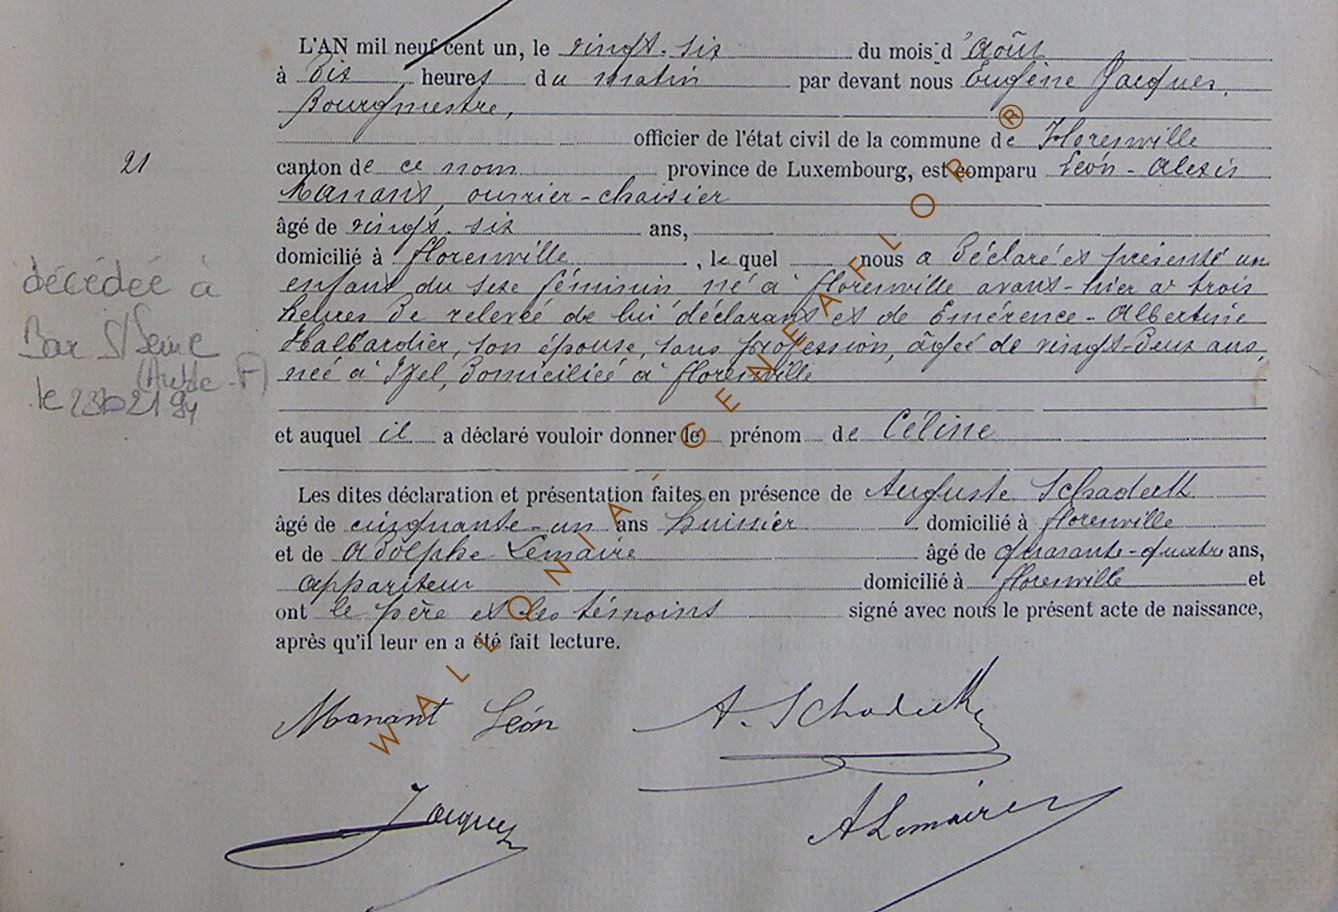 L'AN mil neuf cent un, le vingt-six du mois d'Août
à Dix heures du matin par devant nous Eugène Jacques,
Bourgmestre,
officier de l'état civil de la commune de Florenville
21
canton de ce nom province de Luxembourg, est comparu Léon-Alexis
Manant, ouvrier-chaisier
âgé de vingt-six ans,
domicilié à Florenville, le quel nous a Déclaré et présenté un
enfant du sexe féminin né à Florenville avant-hier à trois
heures De relevée de lui déclarant et de Emérence-Albertine
Halbardier, son épouse, sans profession, âgée de vingt-Deux ans,
née à Izel, Domiciliée à Florenville
décédée à
Bar S/ Seine
(Aube - F)
le 1984
et auquel il a déclaré vouloir donner le prénom de Céline
Les dites déclaration et présentation faites en présence de Auguste Schadeck
âgé de cinquante-un ans huissier domicilié à Florenville
et de Adolphe Lemaire âgé de quarante-quatre ans,
appariteur domicilié à Florenville et
ont le père et les témoins signé avec nous le présent acte de naissance,
après qu'il leur en a été fait lecture.
Manant Léon A. Schadeck
Jacques A Lemaire
WALLONIA-GENEAFLOR®